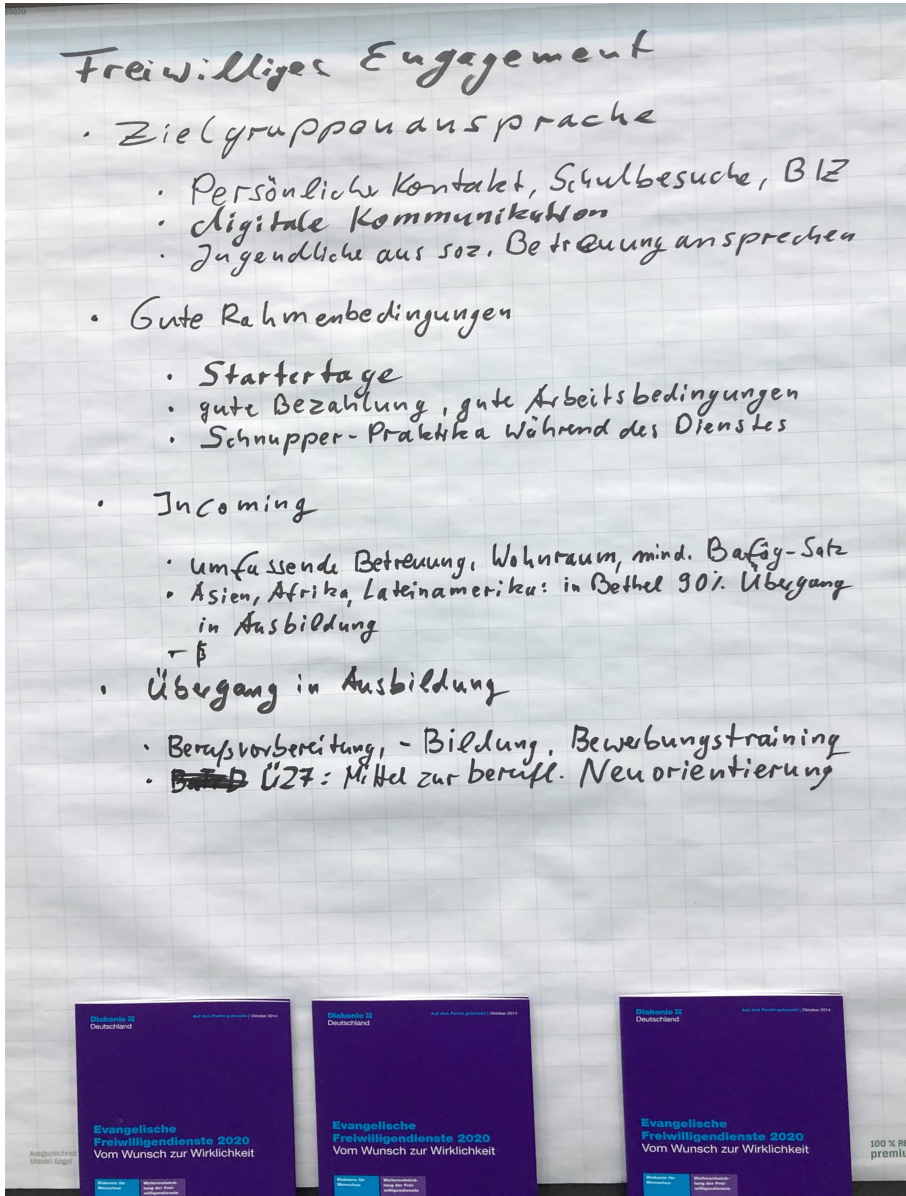 2020
Freiwilliges Engagement
· Zielgruppenansprache
· Persönliche Kontakt, Schulbesuche, BIZ
· digitale Kommunikation
· Jugendliche aus soz. Betreuung ansprechen
· Gute Rahmenbedingungen
· Startertage
· gute Bezahlung, gute Arbeitsbedingungen
· Schnupper-Praktika während des Dienstes
· Incoming
· umfassende Betreuung, Wohnraum, mind. Bafög-Satz
· Asien, Afrika, Lateinamerika: in Bethel 90% Übergang
in Ausbildung
· Übergang in Ausbildung
· Berufsvorbereitung, -Bildung, Bewerbungstraining
· Ü27: Mittel zur berufl. Neuorientierung
Diakonie
Deutschland
Auf den Punkt gebracht | Oktober 2014
Evangelische
Freiwilligendienste 2020
Vom Wunsch zur Wirklichkeit
Diakonie für
Menschen
Weiterentwick-
lung der Frei-
willigendienste
Diakonie
Deutschland
Auf den Punkt gebracht | Oktober 2014
Evangelische
Freiwilligendienste 2020
Vom Wunsch zur Wirklichkeit
Diakonie für
Menschen
Weiterentwick-
lung der Frei-
willigendienste
Diakonie
Deutschland
Auf den Punkt gebracht | Oktober 2014
Evangelische
Freiwilligendienste 2020
Vom Wunsch zur Wirklichkeit
Diakonie für
Menschen
Weiterentwick-
lung der Frei-
willigendienste
Ausgezeichnet
blauen Engel
100 % RE
premiu